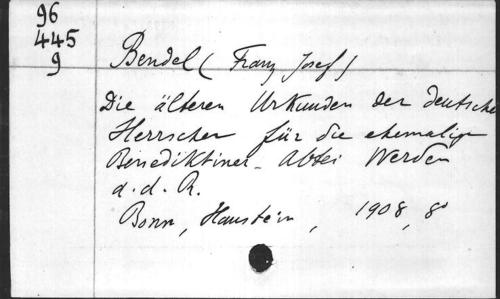 96
445
9
Bendel (Franz Josef)
Die älteren Urkunden der deutsche
Herrscher für die ehemalige
Benediktiner-Abtei Werden
a. d. R.
Bonn, Hanstein, 1908, 8°